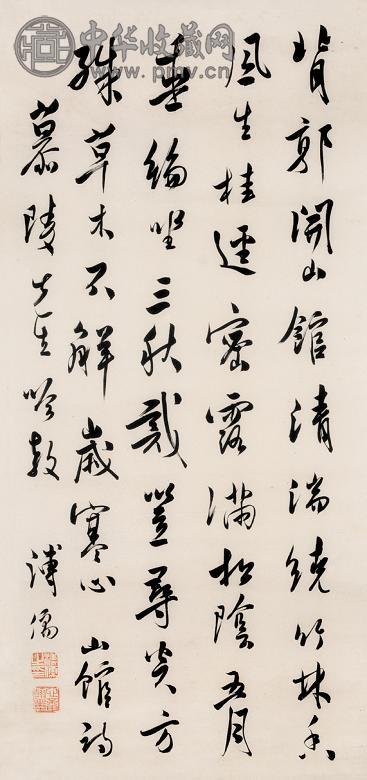 背郭開山館清湍繞竹林香
風生桂逕密露滿松陰五月
垂綸坐三秋戴笠尋炎方
殊草木不解歲寒心 山館詩
慕陵先生吟教 溥儒
中华收藏网
www.pmv.cn